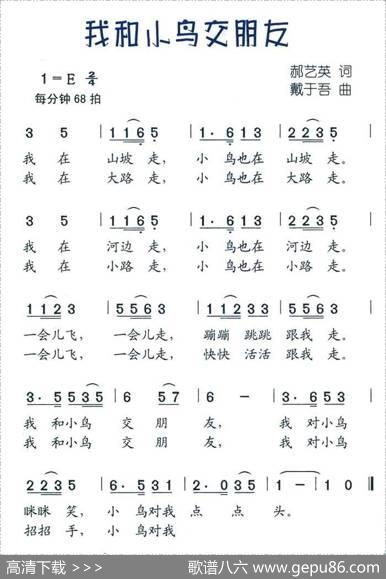 我和小鸟交朋友
1=E 2/4
郝艺英 词
每分钟68拍
戴于吾 曲
3 5 | 1 1 6 5 | 1· 6 1 3 | 2 2 3 5 |
我 在 山坡 走, 小 鸟也在 山坡 走。
我 在 大路 走, 小 鸟也在 大路 走。
3 5 | 1 1 6 5 | 1· 6 1 3 | 2 2 3 5 |
我 在 河边 走, 小 鸟也在 河边 走。
我 在 小路 走, 小 鸟也在 小路 走。
1 1 2 3 | 5 5 6 3 | 1 1 2 3 3 | 5 5 3 5 |
一会儿飞, 一会儿走, 蹦蹦 跳跳 跟我 走。
一会儿飞, 一会儿走, 快快 活活 跟我 走。
3· 5 5 3 5 | 1 6 5 7 | 6 - | 3· 6 5 3 |
我 和小鸟 交 朋 友, 我 对小鸟
我 和小鸟 交 朋 友, 我 对小鸟
2 2 3 5 | 6· 5 3 1 | 2· 0 3 5 | 1 - | 1 0 ‖
眯眯 笑, 小 鸟对我 点 点 头。
招招 手, 小 鸟对我
高清下载 >>>
歌谱八六 www.gepu86.com